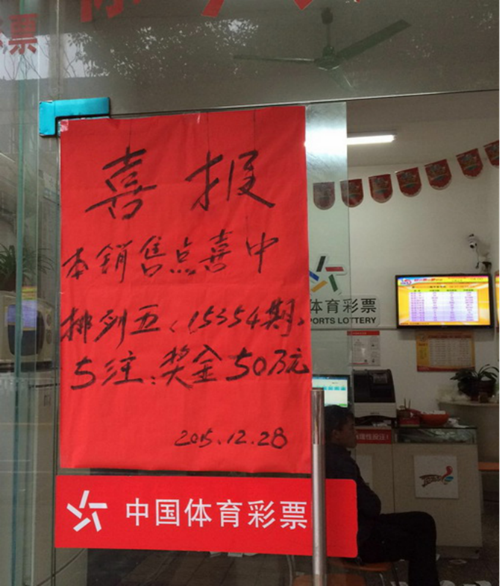 喜报
本销售点喜中
排列五、15354期、
5注:奖金50万元
2015.12.28
中国体育彩票
体育彩票
PORTS LOTTERY
彩票